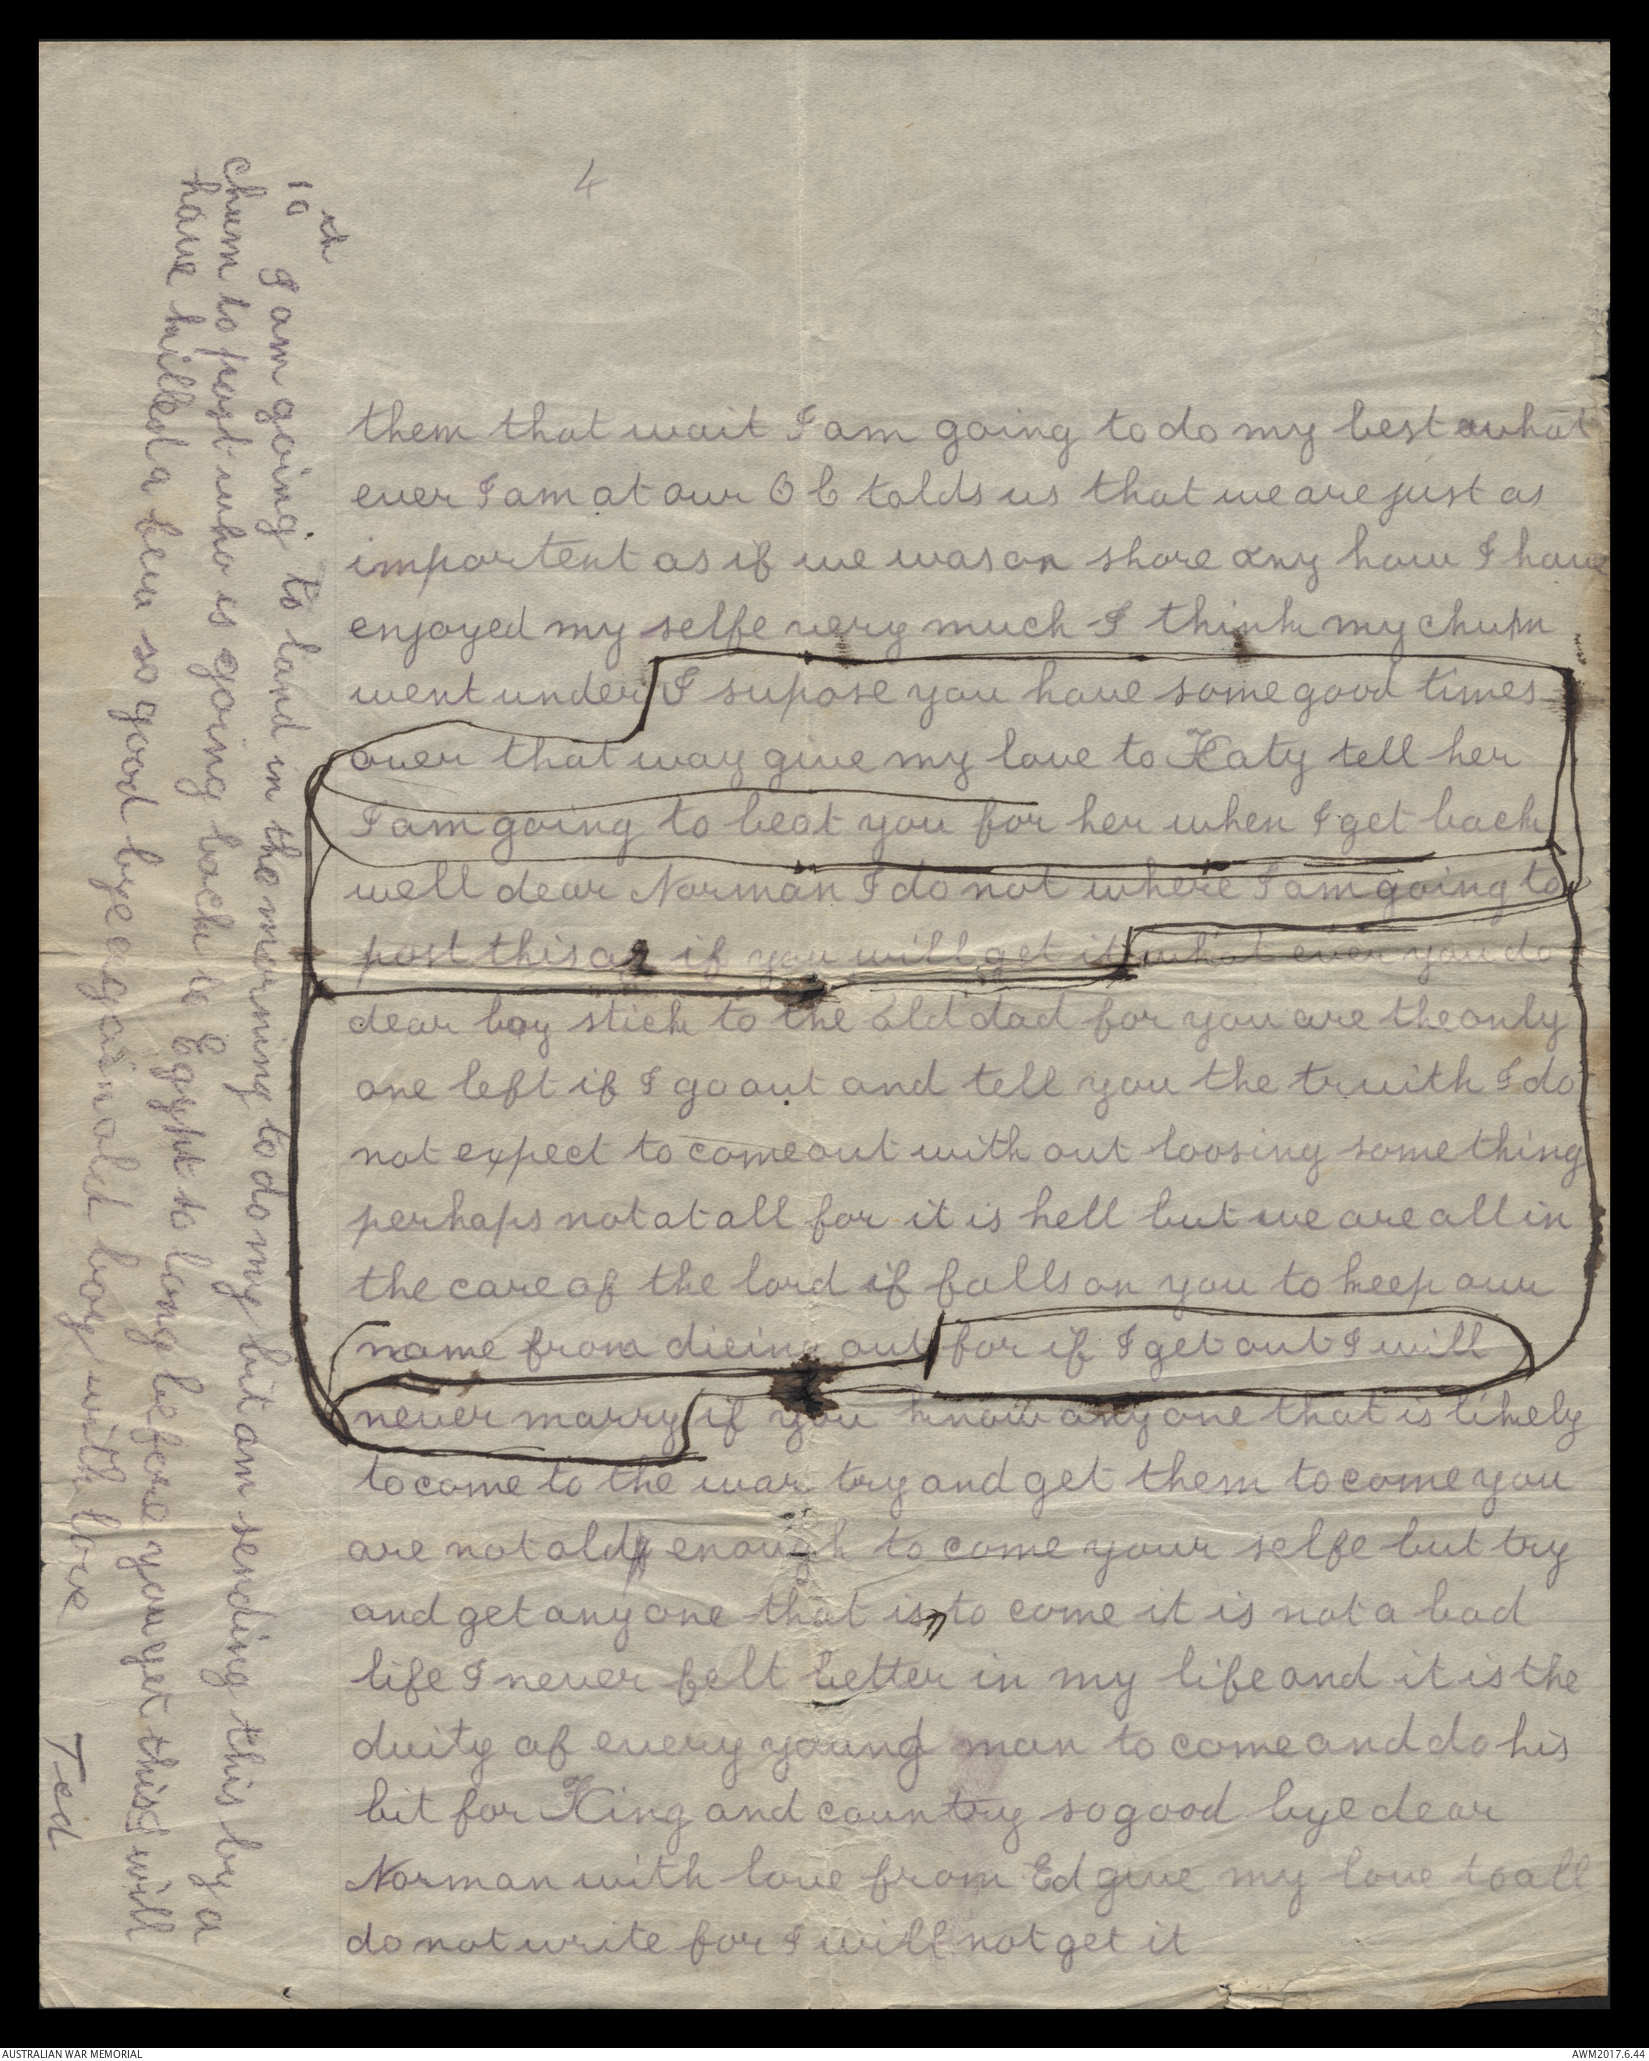 4
them that wait I am going to do my best what
ever I am at our O C tolds us that we are just as
importent as if we was on shore any how I have
enjoyed my selfe very much I think my chum
went under I supose you have some good times
over that way give my love to Katy tell her
I am going to beat you for her when I get back
well dear Norman I do not where I am going to
post this or if you will get it what ever you do
dear boy stick to the old dad for you are the only
one left if I go out and tell you the truith I do
not expect to come out with out loosing something
perhaps not at all for it is hell but we are all in
the care of the lord if falls on you to keep our
name from dieing out for if I get out I will
never marry if you know any one that is likely
to come to the war try and get them to come you
are not old enough to come your selfe but try
and get any one that is to come it is not a bad
life I never felt better in my life and it is the
duity of every young man to come and do his
bit for King and country so good bye dear
Norman with love from Ed give my love to all
do not write for I will not get it
10th I am going to land in the morning to do my bit am sending this by a
chum to post who is going back to Egypt so long before you get this I will
have killed a few so good bye again old boy with love
Ted
AUSTRALIAN WAR MEMORIAL
AWM2017.6.44